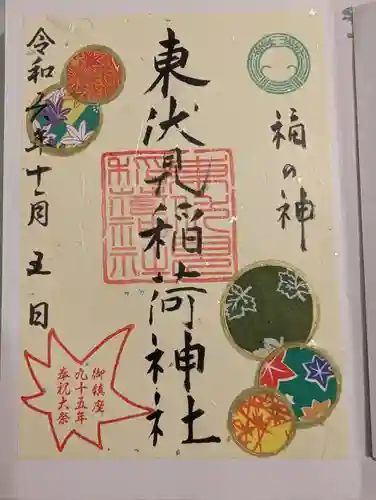 福の神
東伏見稲荷神社
令和六年十一月五日
御鎮座
九十五年
奉祝大祭